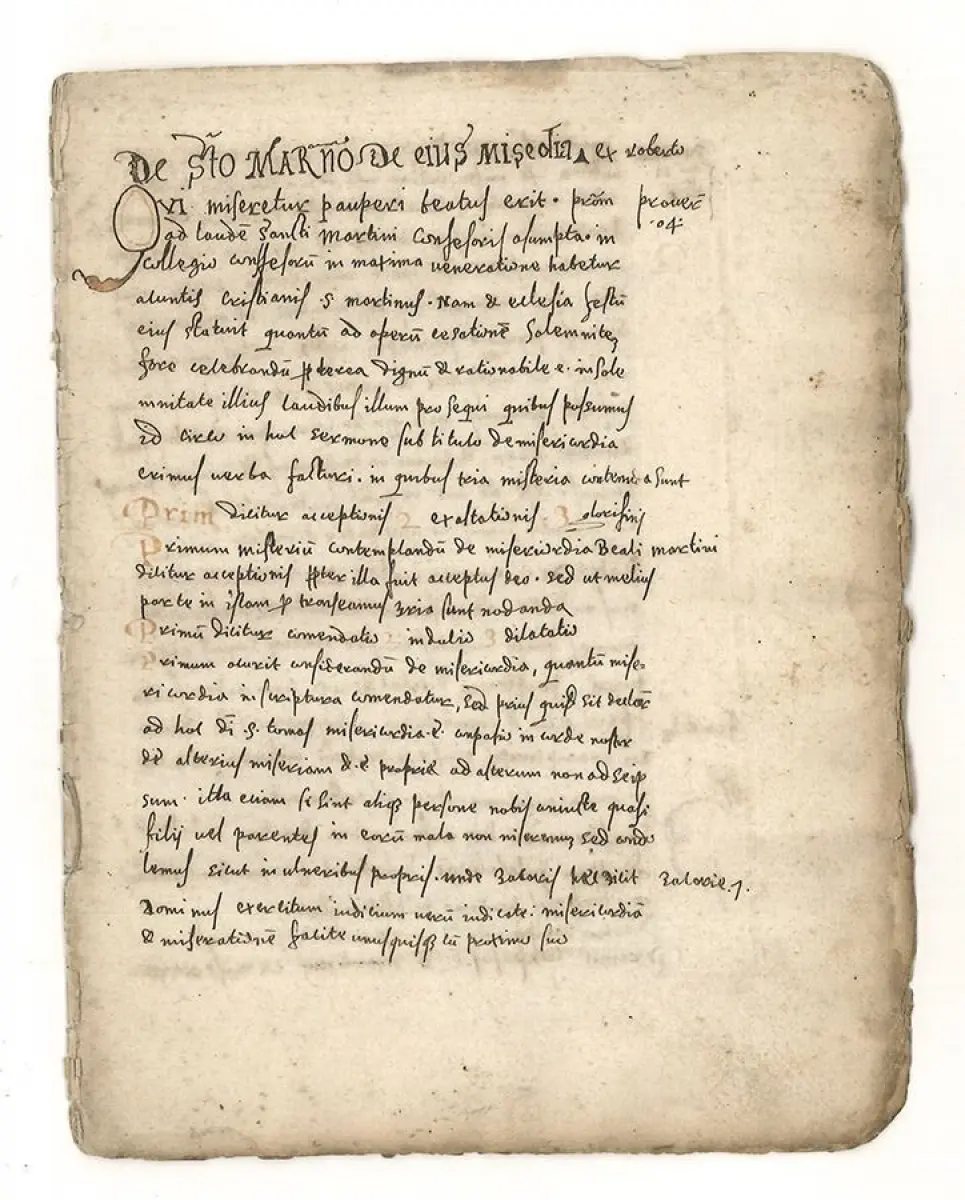 De Sto MARño De eius Misedia ex roberto
QVI miseretur pauperi beatus erit · prouer̄ 14
ad laudē Sancti Martini Confesoris asumpta · in
collegio confesorū in maxima ueneratione habetur
acuntis Cristianis · s · martinus · Nam & eclesia festū
eius statuit quantū ad operū cesationē Solemnite
fore celebrandū ꝓterea dignū & rationabile e · in sole
mnitate illius laudibus illum prosequi quibus possumus
id circo in hoc sermone sub titulo de misericordia
erimus uerba facturi · in quibus tria misteria contenta sunt
Prim dicitur acceptionis 2 exaltationis 3
Primum misteriū contemplandū de misericordia Beati martini
dicitur acceptionis ꝓter illa fuit acceptus deo · sed ut melius
parte in istam ꝑ transeamus 3ria sunt nodanda
Primū dicitur comendatio 2 indutio 3 dilatatio
Primum ocurit considerandū de misericordia, quantū mise-
ricordia in scriptura comendatur, sed prius quid sit
ad hoc dī · s · tomas misericordia · ē · conpasio in corde nostr
dē alterius miseriam & · ē proprie ad alterum non ad seip
sum · illa eciam si sint aliqȝ persone nobis coniuncte quasi
filij uel parentes in eorū mala non miseremur sed condo
lemus sicut in ulneribus propris · unde zacaris dicit zacarie · 7 ·
Dominus exercitum iudicium uerū iudicate · misericordiā
& miserationē facite unusquisqȝ cū proximo suo